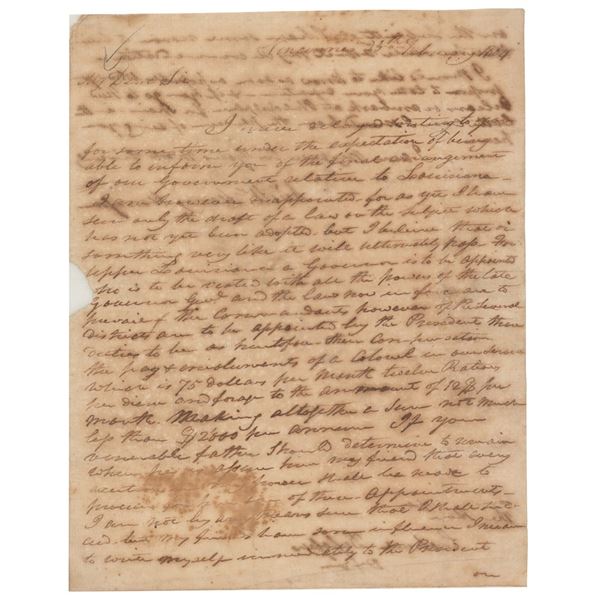 February
My Dear Sir
I have delayed writing to you
for some time under the expectation of being
able to inform you of the final arrangement
of our Government relative to Louisiana
I am however disappointed, for as yet I have
seen only the draft of a Law on the subject which
has not yet been adopted but I believe that or
something very like it will ultimately pass. For
Upper Louisiana a Governor is to be appointed
he is to be vested with all the powers of the late
Governor Genl and the Laws now in force are to
prevail & the Commandants of the several
districts are to be appointed by the President their
duties to be as heretofore their Compensation
the pay & emoluments of a Colonel in our service
which is 75 dollars per Month twelve Rations
per diem and forage to the amount of 12$ per
month. Making altogether a sum not much
less than $2000 per annum If your
venerable father should determine to remain
assure him my friend that every
shall be made to
procure of these Appointments
I am not by any means sure that I shall
but my friends have some influence I mean
to write myself immediately to the President
on